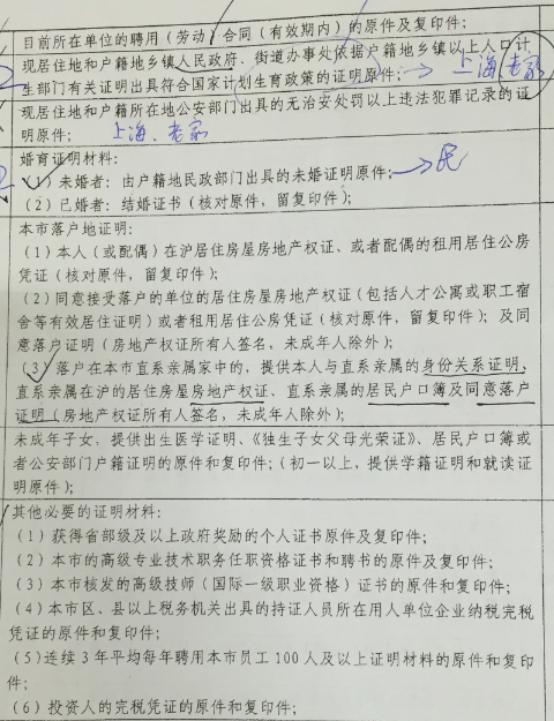 目前所在单位的聘用（劳动）合同（有效期内）的原件及复印件；
现居住地和户籍地乡镇人民政府、街道办事处依据户籍地乡镇以上人口计
生部门有关证明出具符合国家计划生育政策的证明原件；→ 上海 老家
现居住地和户籍所在地公安部门出具的无治安处罚以上违法犯罪记录的证
明原件； 上海、老家
婚育证明材料：
（1）未婚者：由户籍地民政部门出具的未婚证明原件；→民
（2）已婚者：结婚证书（核对原件，留复印件）；
本市落户地证明：
（1）本人（或配偶）在沪居住房屋房地产权证、或者配偶的租用居住公房
凭证（核对原件，留复印件）；
（2）同意接受落户的单位的居住房屋房地产权证（包括人才公寓或职工宿
舍等有效居住证明）或者租用居住公房凭证（核对原件，留复印件）；及同
意落户证明（房地产权证所有人签名，未成年人除外）；
（3）落户在本市直系亲属家中的，提供本人与直系亲属的身份关系证明，
直系亲属在沪的居住房屋房地产权证、直系亲属的居民户口簿及同意落户
证明（房地产权证所有人签名，未成年人除外）；
未成年子女，提供出生医学证明、《独生子女父母光荣证》、居民户口簿或
者公安部门户籍证明的原件和复印件；（初一以上，提供学籍证明和就读证
明原件）；
其他必要的证明材料：
（1）获得省部级及以上政府奖励的个人证书原件及复印件；
（2）本市的高级专业技术职务任职资格证书和聘书的原件及复印件；
（3）本市核发的高级技师（国际一级职业资格）证书的原件和复印件；
（4）本市区、县以上税务机关出具的持证人员所在用人单位企业纳税完税
凭证的原件和复印件；
（5）连续3年平均每年聘用本市员工100人及以上证明材料的原件和复印
件；
（6）投资人的完税凭证的原件和复印件；